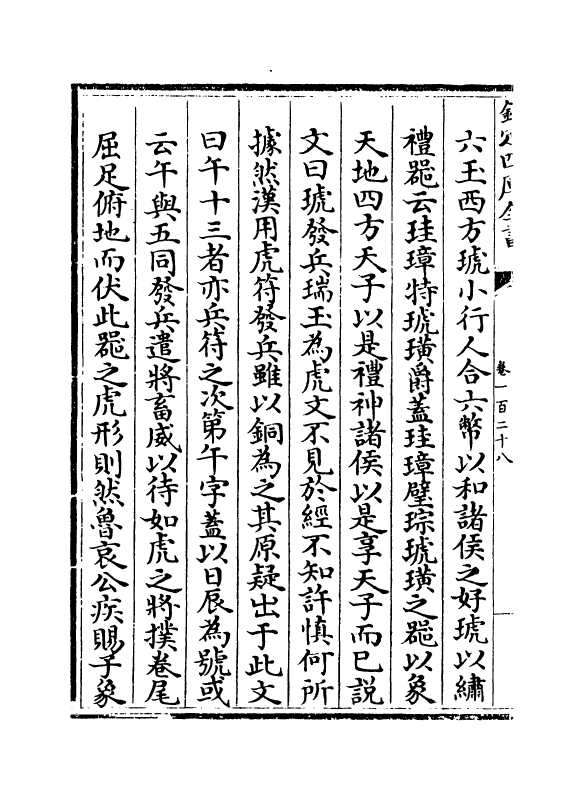 欽定四庫全書
卷一百二十八
六玉西方琥小行人合六幣以和諸侯之好琥以繡
禮器云珪璋特琥璜爵蓋珪璋璧琮琥璜之器以象
天地四方天子以是禮神諸侯以是享天子而已説
文曰琥發兵瑞玉為虎文不見於經不知許慎何所
據然漢用虎符發兵雖以銅為之其原疑出于此文
曰午十三者亦兵符之次第午字蓋以日辰為號或
云午與五同發兵遣將畜威以待如虎之將撲卷尾
屈足俯地而伏此器之虎形則然魯哀公疾賜子𧰼